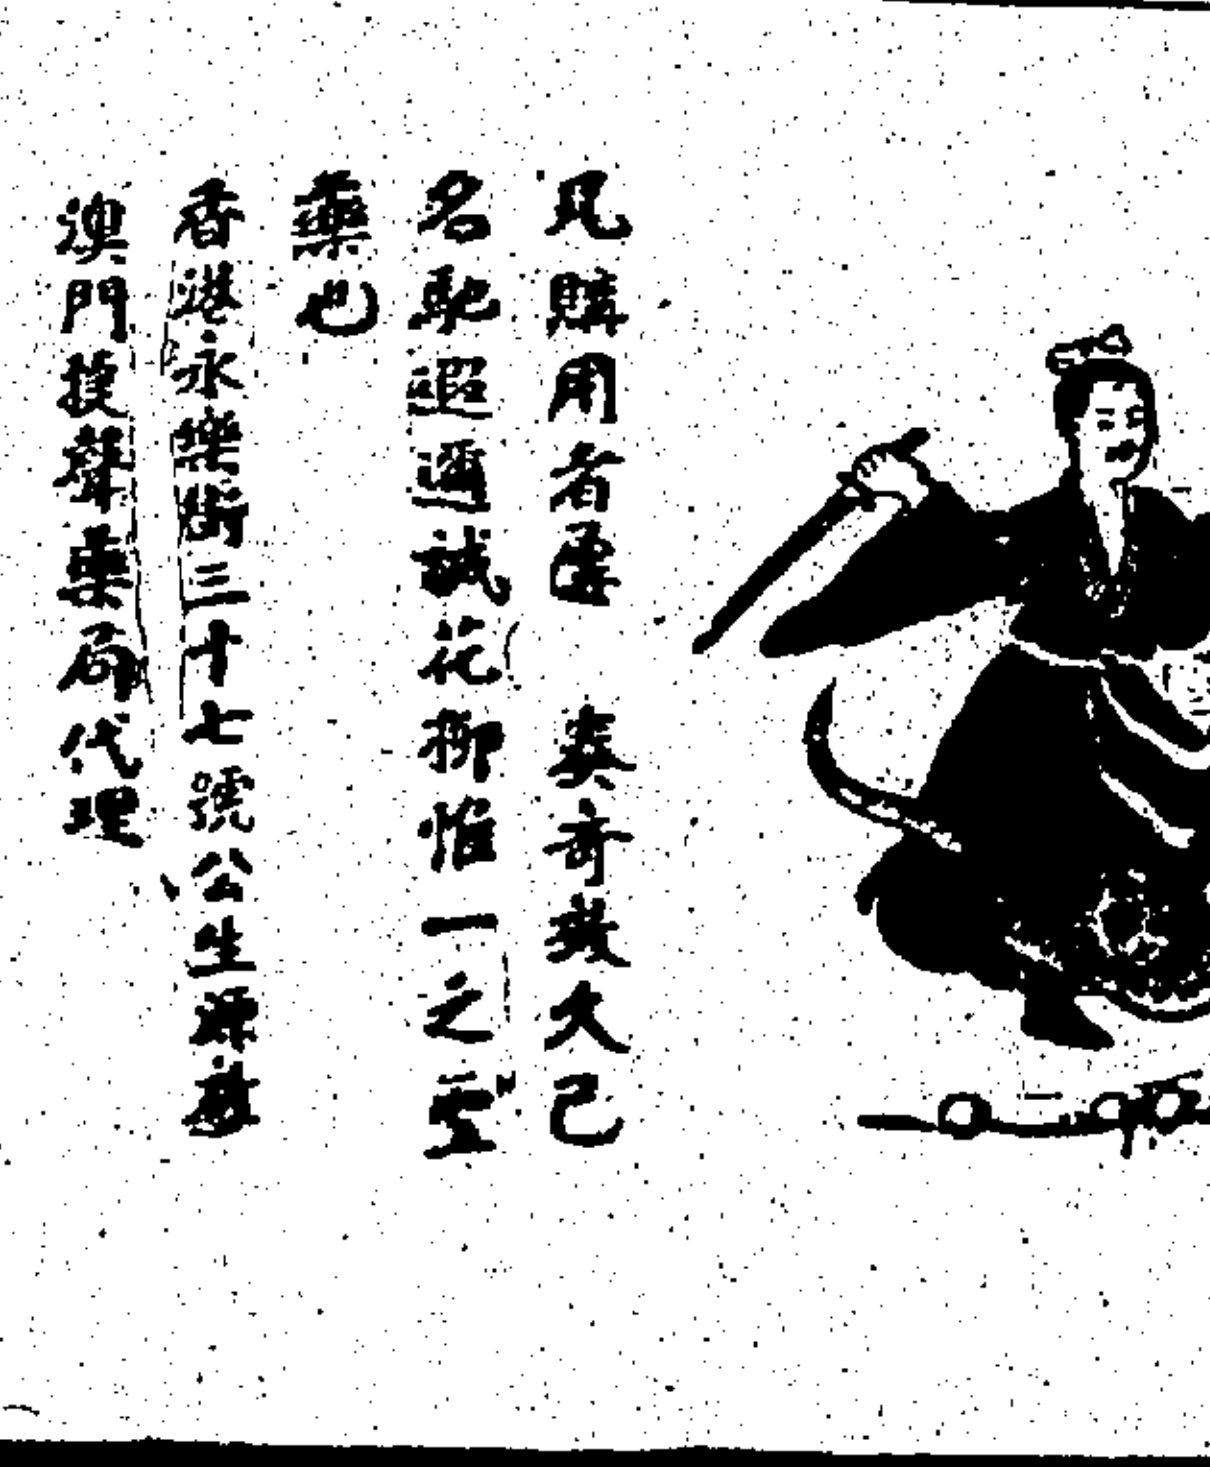 凡購用者屢 奏奇效久已
名馳遐邇誠花柳惟一之灵
藥也
香港永樂街三十七號公生源
澳門聲藥局代理